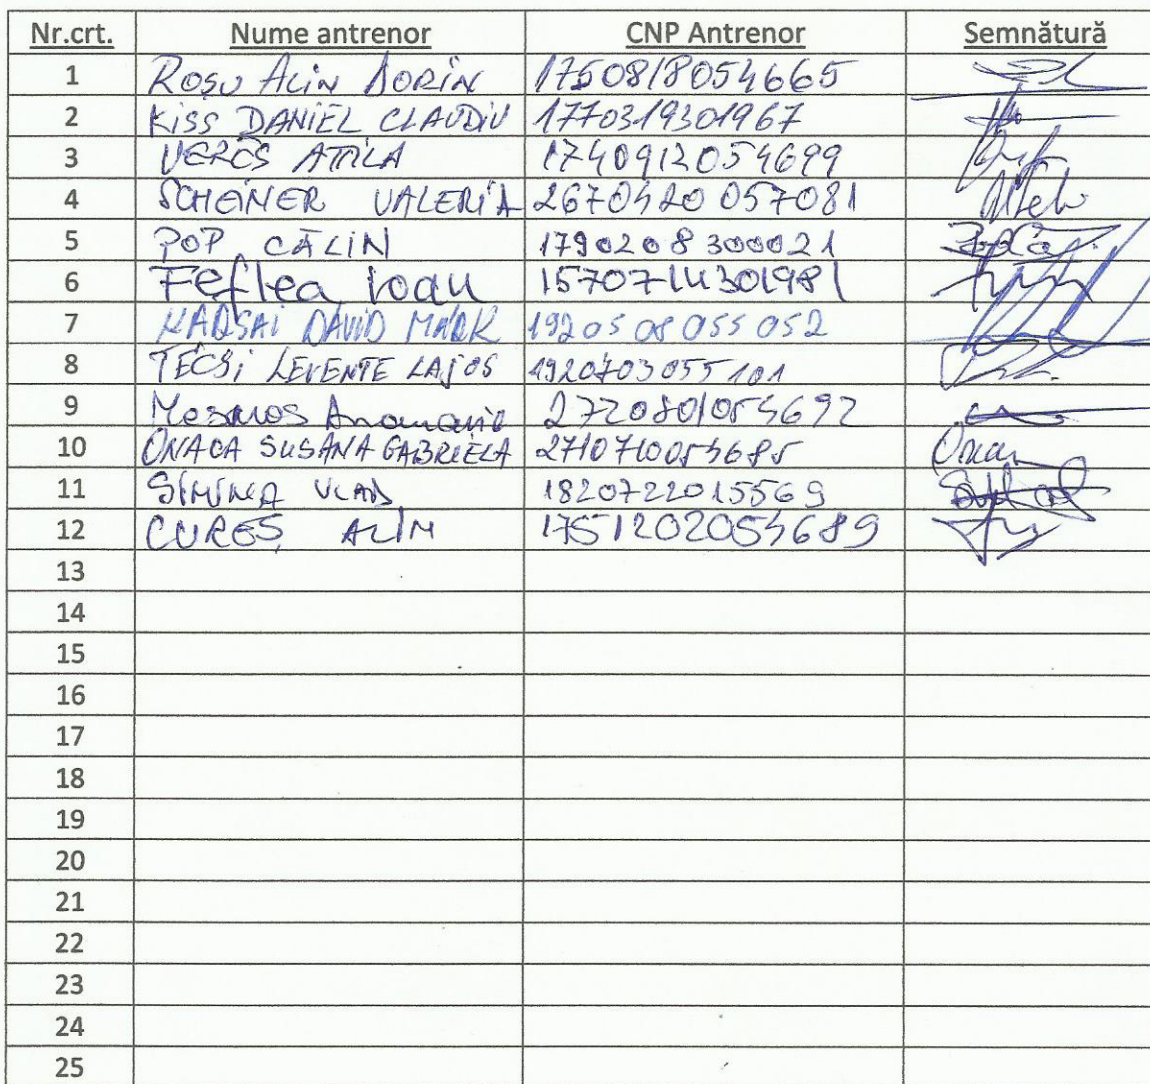 Nr.crt. Nume antrenor CNP Antrenor Semnătură
1 Roșu Alin Dorin 1750818054665
2 KISS DANIEL CLAUDIU 1770319301967
3 VERES ATTILA 1740912054699
4 SCHEINER VALERIA 2670420057081
5 POP CĂLIN 1790208300021
6 Feflea Ioan 1570714301981
7 KARSAI DAVID MARK 1920508055052
8 TECSI LEVENTE LAJOS 1920703055101
9 Mesaros Anamaria 2720801054692
10 ONACA SUSANA GABRIELA 2710710054685
11 SIMINA VLAD 1820722015569
12 CUREȘ ALIN 1751202054689
13
14
15
16
17
18
19
20
21
22
23
24
25